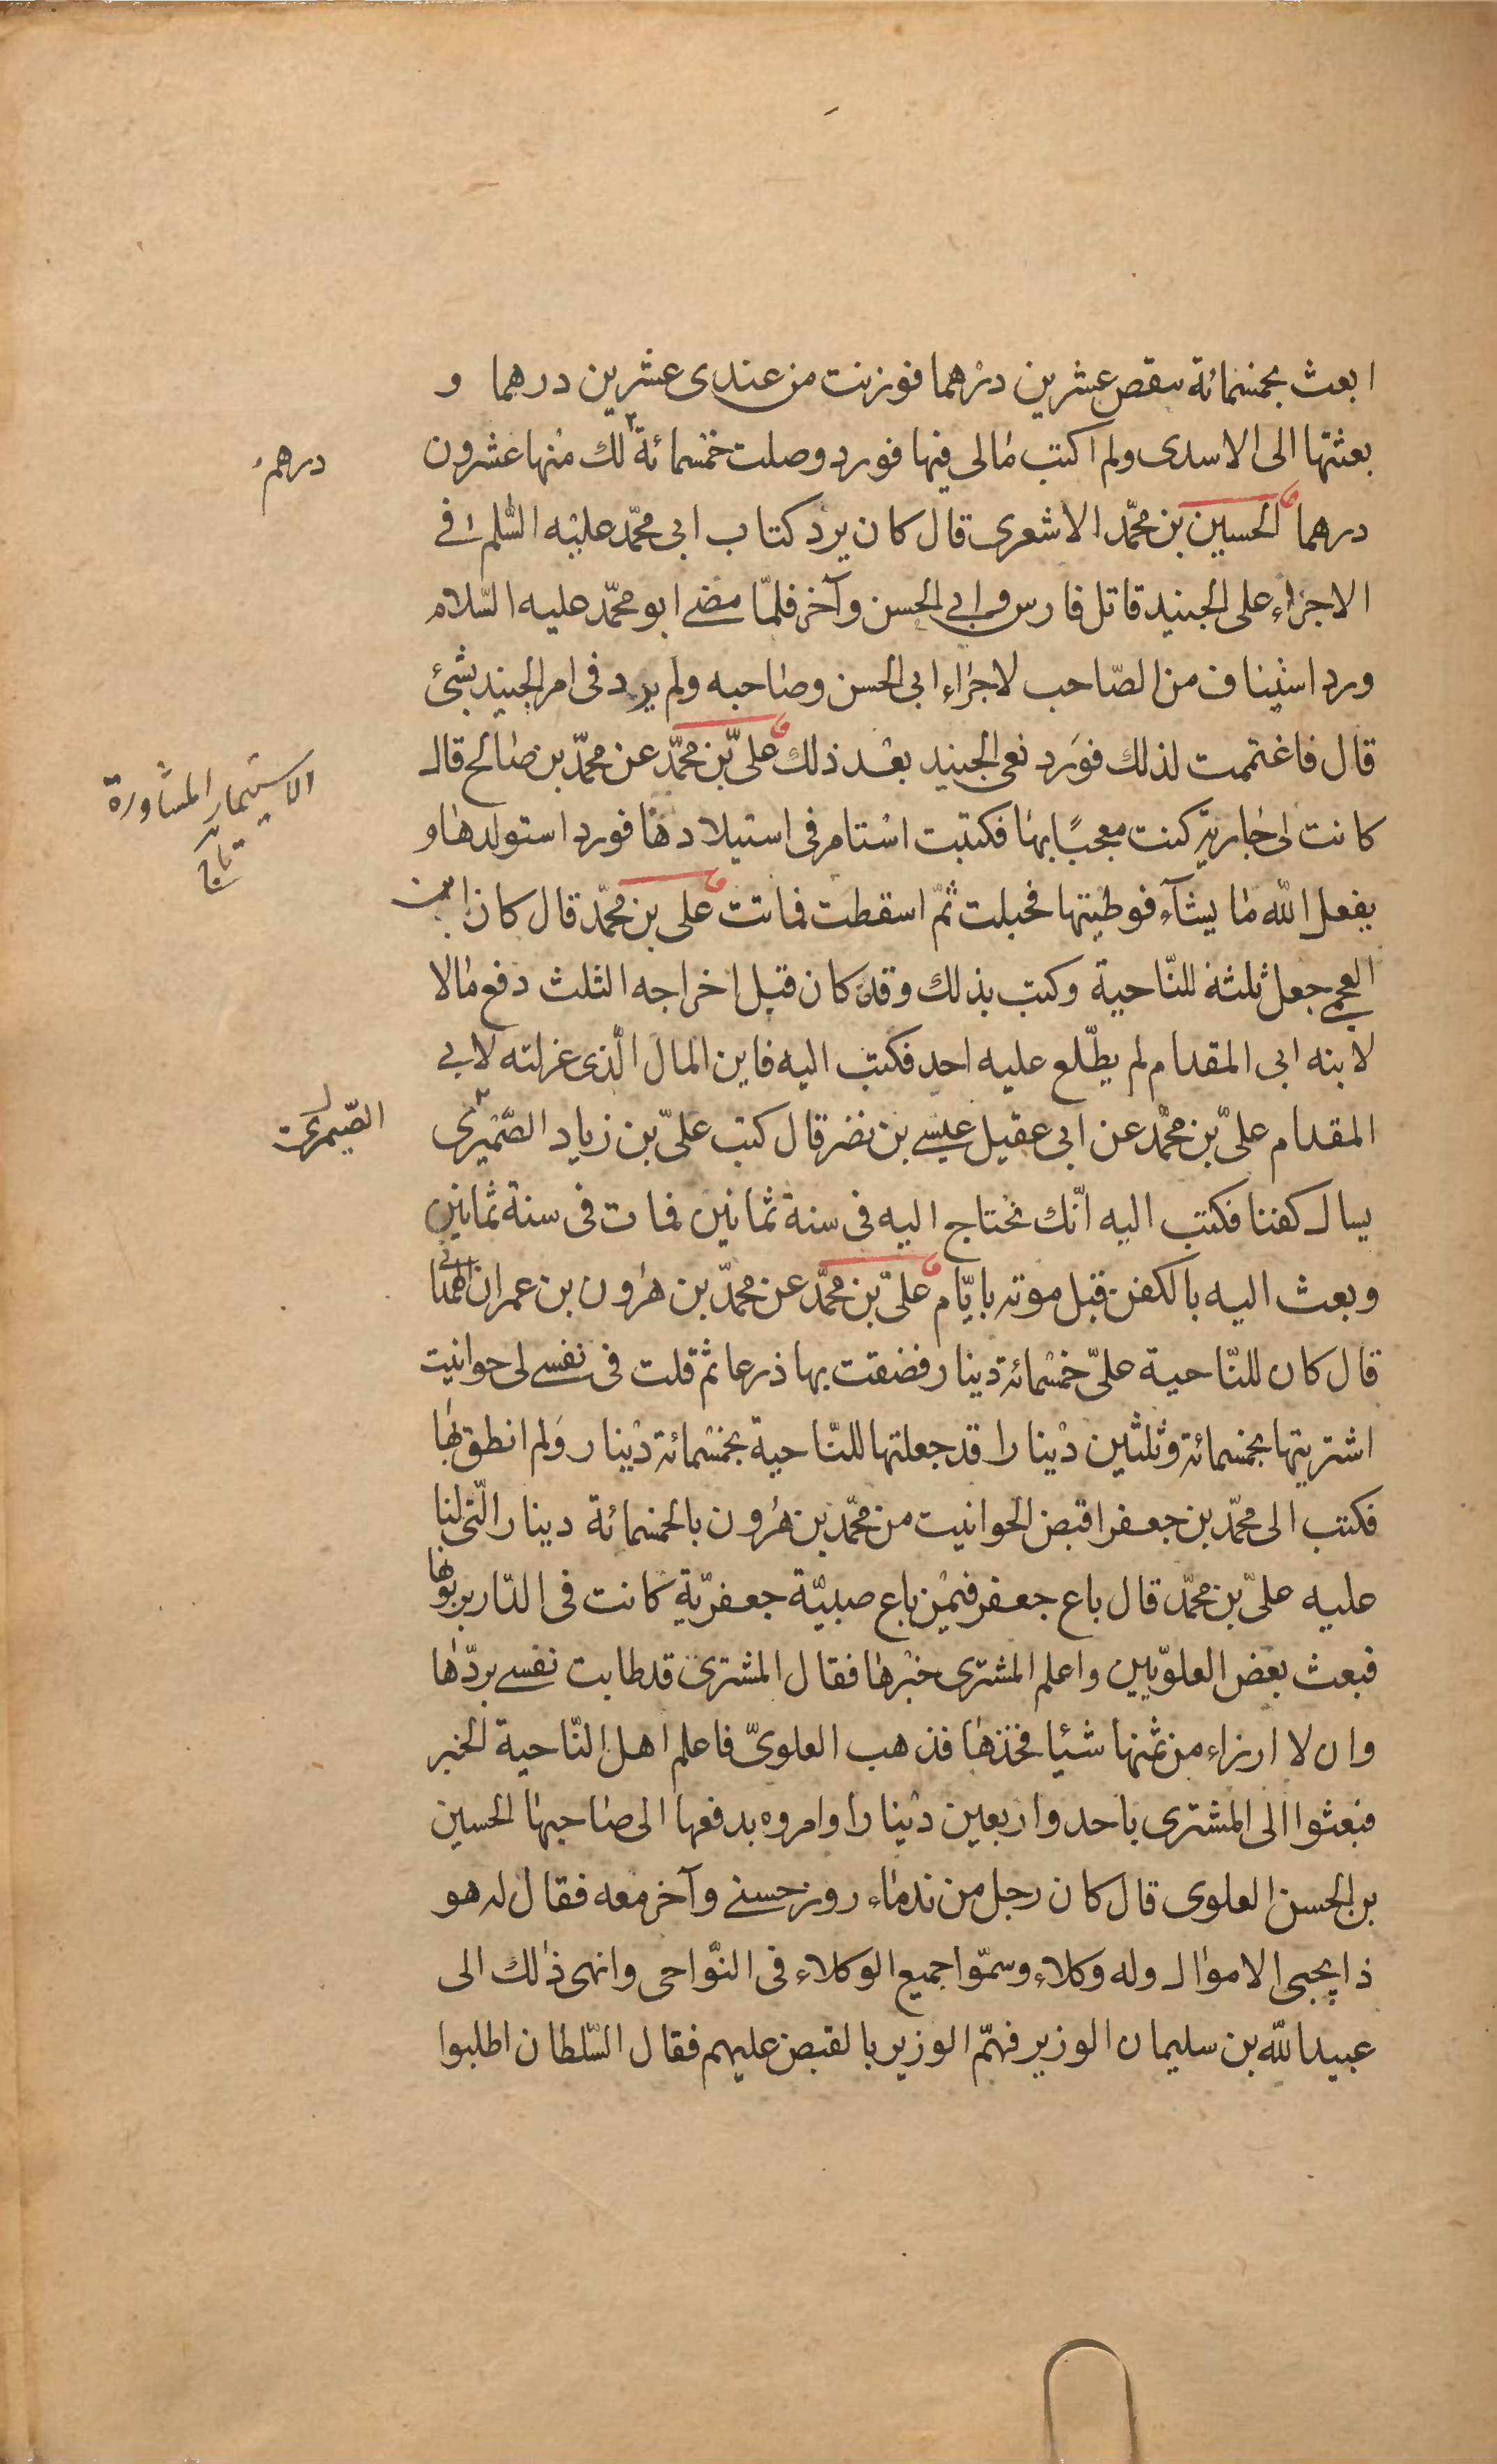 ابعث بخمسمائة ينقص عشرين درهما فوزنت من عندى عشرين درهما و
بعثتها الى الاسدى ولم اكتب مالى فيها فورد وصلت خمسمائة لك منها عشرون
درهم
درهما الحسين بن محمّد الاشعرى قال كان يرد كتاب ابى محمّد عليه السّلم فى
الاجراء على الجنيد قاتل فارس وابى الحسن وآخر فلمّا مضى ابو محمّد عليه السّلام
ورد استيناف من الصّاحب لاجراء ابى الحسن وصاحبه ولم يرد فى امر الجنيد بشئ
قال فاغتممت لذلك فورد نعى الجنيد بعد ذلك علىّ بن محمّد عن محمّد بن صالح قال
الاستيمار المشاورة
تاج
كانت لى جارية كنت معجبًا بها فكتبت استامر فى استيلادها فورد استولدها و
يفعل الله ما يشآء فوطيتها فحبلت ثمّ اسقطت فماتت على بن محمّد قال كان ابن
العجمى جعل ثلثه للنّاحية وكتب بذلك وقد كان قبل اخراجه الثلث دفع مالا
لابنه ابى المقدام لم يطّلع عليه احد فكتب اليه فاين المال الّذى عزلته لابى
المقدام علىّ بن محمّد عن ابى عقيل عيسى بن نضر قال كتب علىّ بن زياد الصّميرى
الصّيمرى
يسال كفنا فكتب اليه انّك تحتاج اليه فى سنة ثمانين فمات فى سنة ثمانين
وبعث اليه بالكفن قبل موته بايّام علىّ بن محمّد عن محمّد بن هرون بن عمران الهمدانى
قال كان للنّاحية علىّ خمسمائة دينار فضقت بها ذرعا ثم قلت فى نفسى لى حوانيت
اشتريتها بخمسمائة وثلثين دينارا قد جعلتها للنّاحية بخمسمائة دينار ولم انطق بها
فكتب الى محمّد بن جعفر اقبض الحوانيت من محمّد بن هرون بالخمسمائة دينار الّتى لنا
عليه علىّ بن محمّد قال باع جعفر فيمن باع صبيّة جعفريّة كانت فى الدّار يربّونها
فبعث بعض العلويّين واعلم المشترى خبرها فقال المشترى قد طابت نفسى بردّها
وان لا ارزاء من ثمنها شيئا فخذها فذهب العلوىّ فاعلم اهل النّاحية الخبر
فبعثوا الى المشترى باحد واربعين دينارا وامروه بدفعها الى صاحبها الحسين
بن الحسن العلوى قال كان رجل من ندماء روز حسنى وآخر معه فقال له هو
ذا يجبى الاموال وله وكلاء وسمّوا جميع الوكلاء فى النّواحى وانهى ذلك الى
عبيد الله بن سليمان الوزير فهمّ الوزير بالقبض عليهم فقال السّلطان اطلبوا